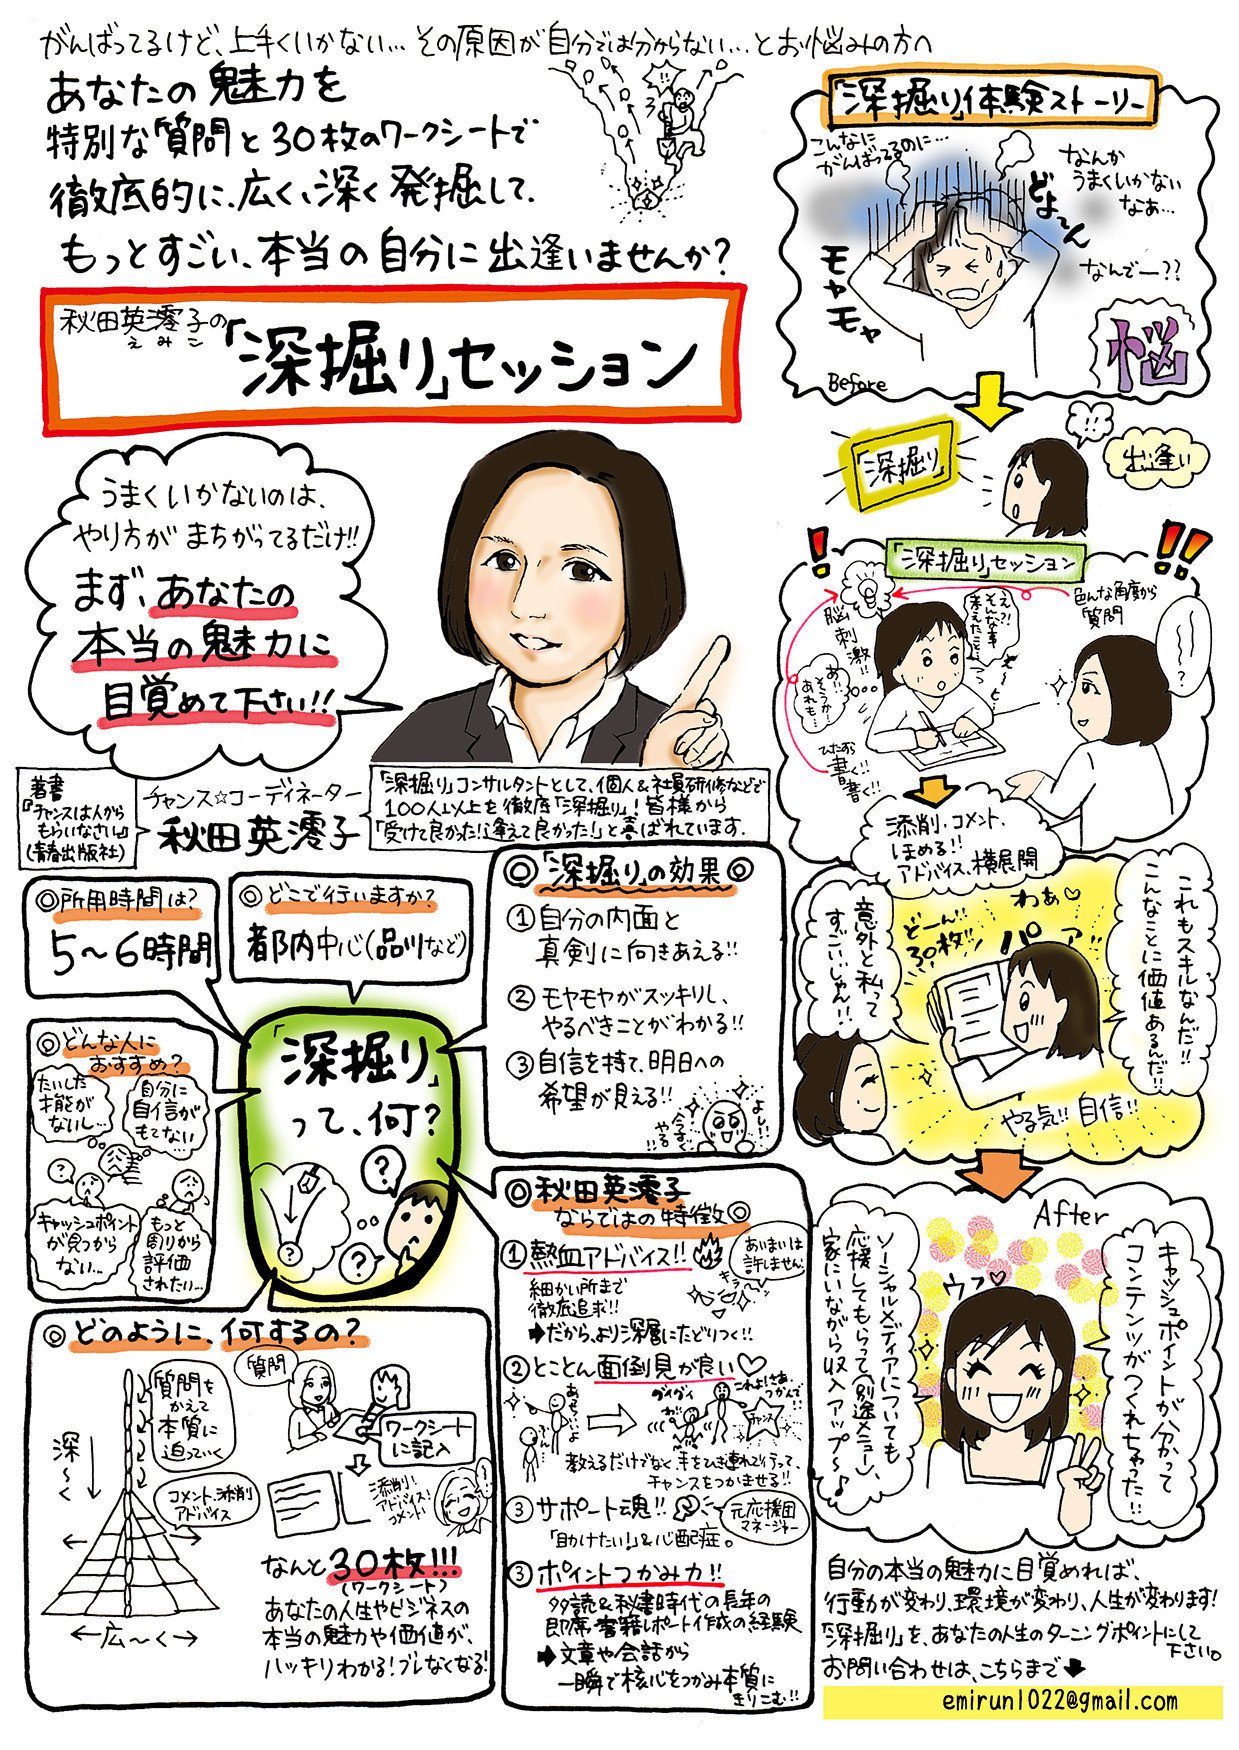 がんばってるけど、上手くいかない… その原因が自分では分からない… とお悩みの方へ
あなたの魅力を
特別な質問と30枚のワークシートで
徹底的に、広く、深く発掘して、
もっとすごい、本当の自分に出逢いませんか?
秋田英澪子の
えみこ
「深掘り」セッション
うまくいかないのは、
やり方がまちがってるだけ!!
まず、あなたの
本当の魅力に
目覚めて下さい!!
著書
『チャンスは人から
もらいなさい』
(青春出版社)
チャンス☆コーディネーター
秋田英澪子
「深掘り」コンサルタントとして、個人&社員研修などで
100人以上を徹底「深掘り」! 皆様から
「受けて良かった!逢えて良かった!」と喜ばれています.
◎所用時間は?
5〜6時間
◎どこで行いますか?
都内中心(品川など)
◎どんな人に
おすすめ?
たいした
才能が
ないし…
自分に
自信が
もてない…
?
キャッシュポイント
が見つから
ない…
もっと
周りから
評価
されたい…
「深掘り」
って、何?
?
?
?
◎「深掘り」の効果◎
①自分の内面と
真剣に向きあえる!!
②モヤモヤがスッキリし、
やるべきことがわかる!!
③自信を持て、明日への
希望が見える!!
よし!!
やるです!!
◎秋田英澪子
ならではの特徴◎
①熱血アドバイス!!
あいまいは
許しません!
キラーン
細かい所まで
徹底追求!!
➡だから、より深層にたどりつく!!
②とことん面倒見が良い♡
あっちだよ
ふーん…
グイグイ
これよ!さあ、
つかんで!!
チャンス
教えるだけでなく手をひき連れて行って、
チャンスをつかませる!!
③サポート魂!!
元応援団
マネージャー
「助けたい!」&心配症。
③ポイントつかみ力!!
多読&秘書時代の長年の
即席・書籍レポート作成の経験
➡文章や会話から
一瞬で核心をつかみ本質に
きりこむ!!
◎どのように、何するの?
深〜く
質問を
かえて
本質に
迫っていく
コメント、添削
アドバイス
←広〜く→
質問
ワークシート
に記入
添削!
アドバイス!
コメント!
なんと30枚!!!
(ワークシート)
あなたの人生やビジネスの
本当の魅力や価値が、
ハッキリわかる!ブレなくなる!
「深掘り」体験ストーリー
こんなに
がんばってるのに…
なんか
うまくいかない
なぁ…
どよ〜ん
モヤモヤ
なんでー??
悩
Before
「深掘り」
!!
出逢い
!
!!
「深掘り」セッション
色んな角度から
質問
脳刺激!!
え?!
そんな事
考えたこと…
え〜と…
あ!!
そうか…
あれも…
ひたすら
書く!!
書く!!
?
添削・コメント、
ほめる!!
アドバイス、横展開
わぁ♡
どーん!!
30枚!!
パァ
意外と私って
すごいじゃん!!
これもスキルなんだ!!
こんなことに価値あるんだ!!
やる気!! 自信!!
After
キャッシュポイントが分かって
コンテンツがつくれちゃった!!
ウフ♡
ソーシャルメディアについても
応援してもらって(別途メニュー)、
家にいながら収入アップ〜♪
自分の本当の魅力に目覚めれば、
行動が変わり、環境が変わり、人生が変わります!
「深掘り」を、あなたの人生のターニングポイントにして
下さい。
お問い合わせは、こちらまで
emirun1022@gmail.com